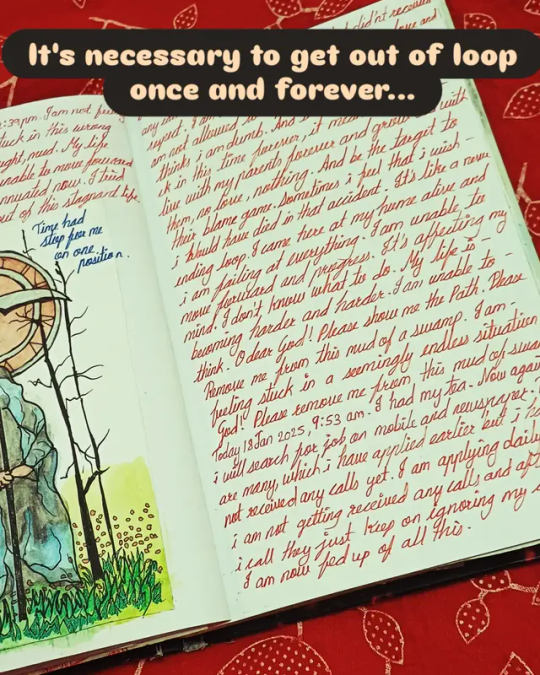 It's necessary to get out of loop
once and forever...
:39pm. I am not
stuck in this wrong
mud. My life
unable to move forward
now. I tried
out of this stagnant life.
Time had
stop for me
on one
position.
didn't received
love and
respect. I am
am not allowed
thinks i am dumb. And
in this time forever, it
live with my parents forever and with
them, no love, nothing. And be the target to
their blame game. Sometimes i feel that i wish-
i would have died in that accident. It's like a never
ending loop. I came here at my home alive and
i am failing at everything. I am unable to
move forward and progress. It's affecting my
mind. I don't know what to do. My life is-
becoming harder and harder. I am unable to-
think. O dear God! Please show me the Path. Please
Remove me from this mud of a swamp. I am-
feeling stuck in a seemingly endless situation
God! Please remove me from this mud of
Today 18 Jan 2025, 9:53 am. I had my tea. Now again
i will search for job on mobile and newspaper.
are many, which i have applied earlier but i
not received any calls yet. I am applying daily
i am not getting received any calls and
i call they just keep on ignoring my
I am now fed up of all this.